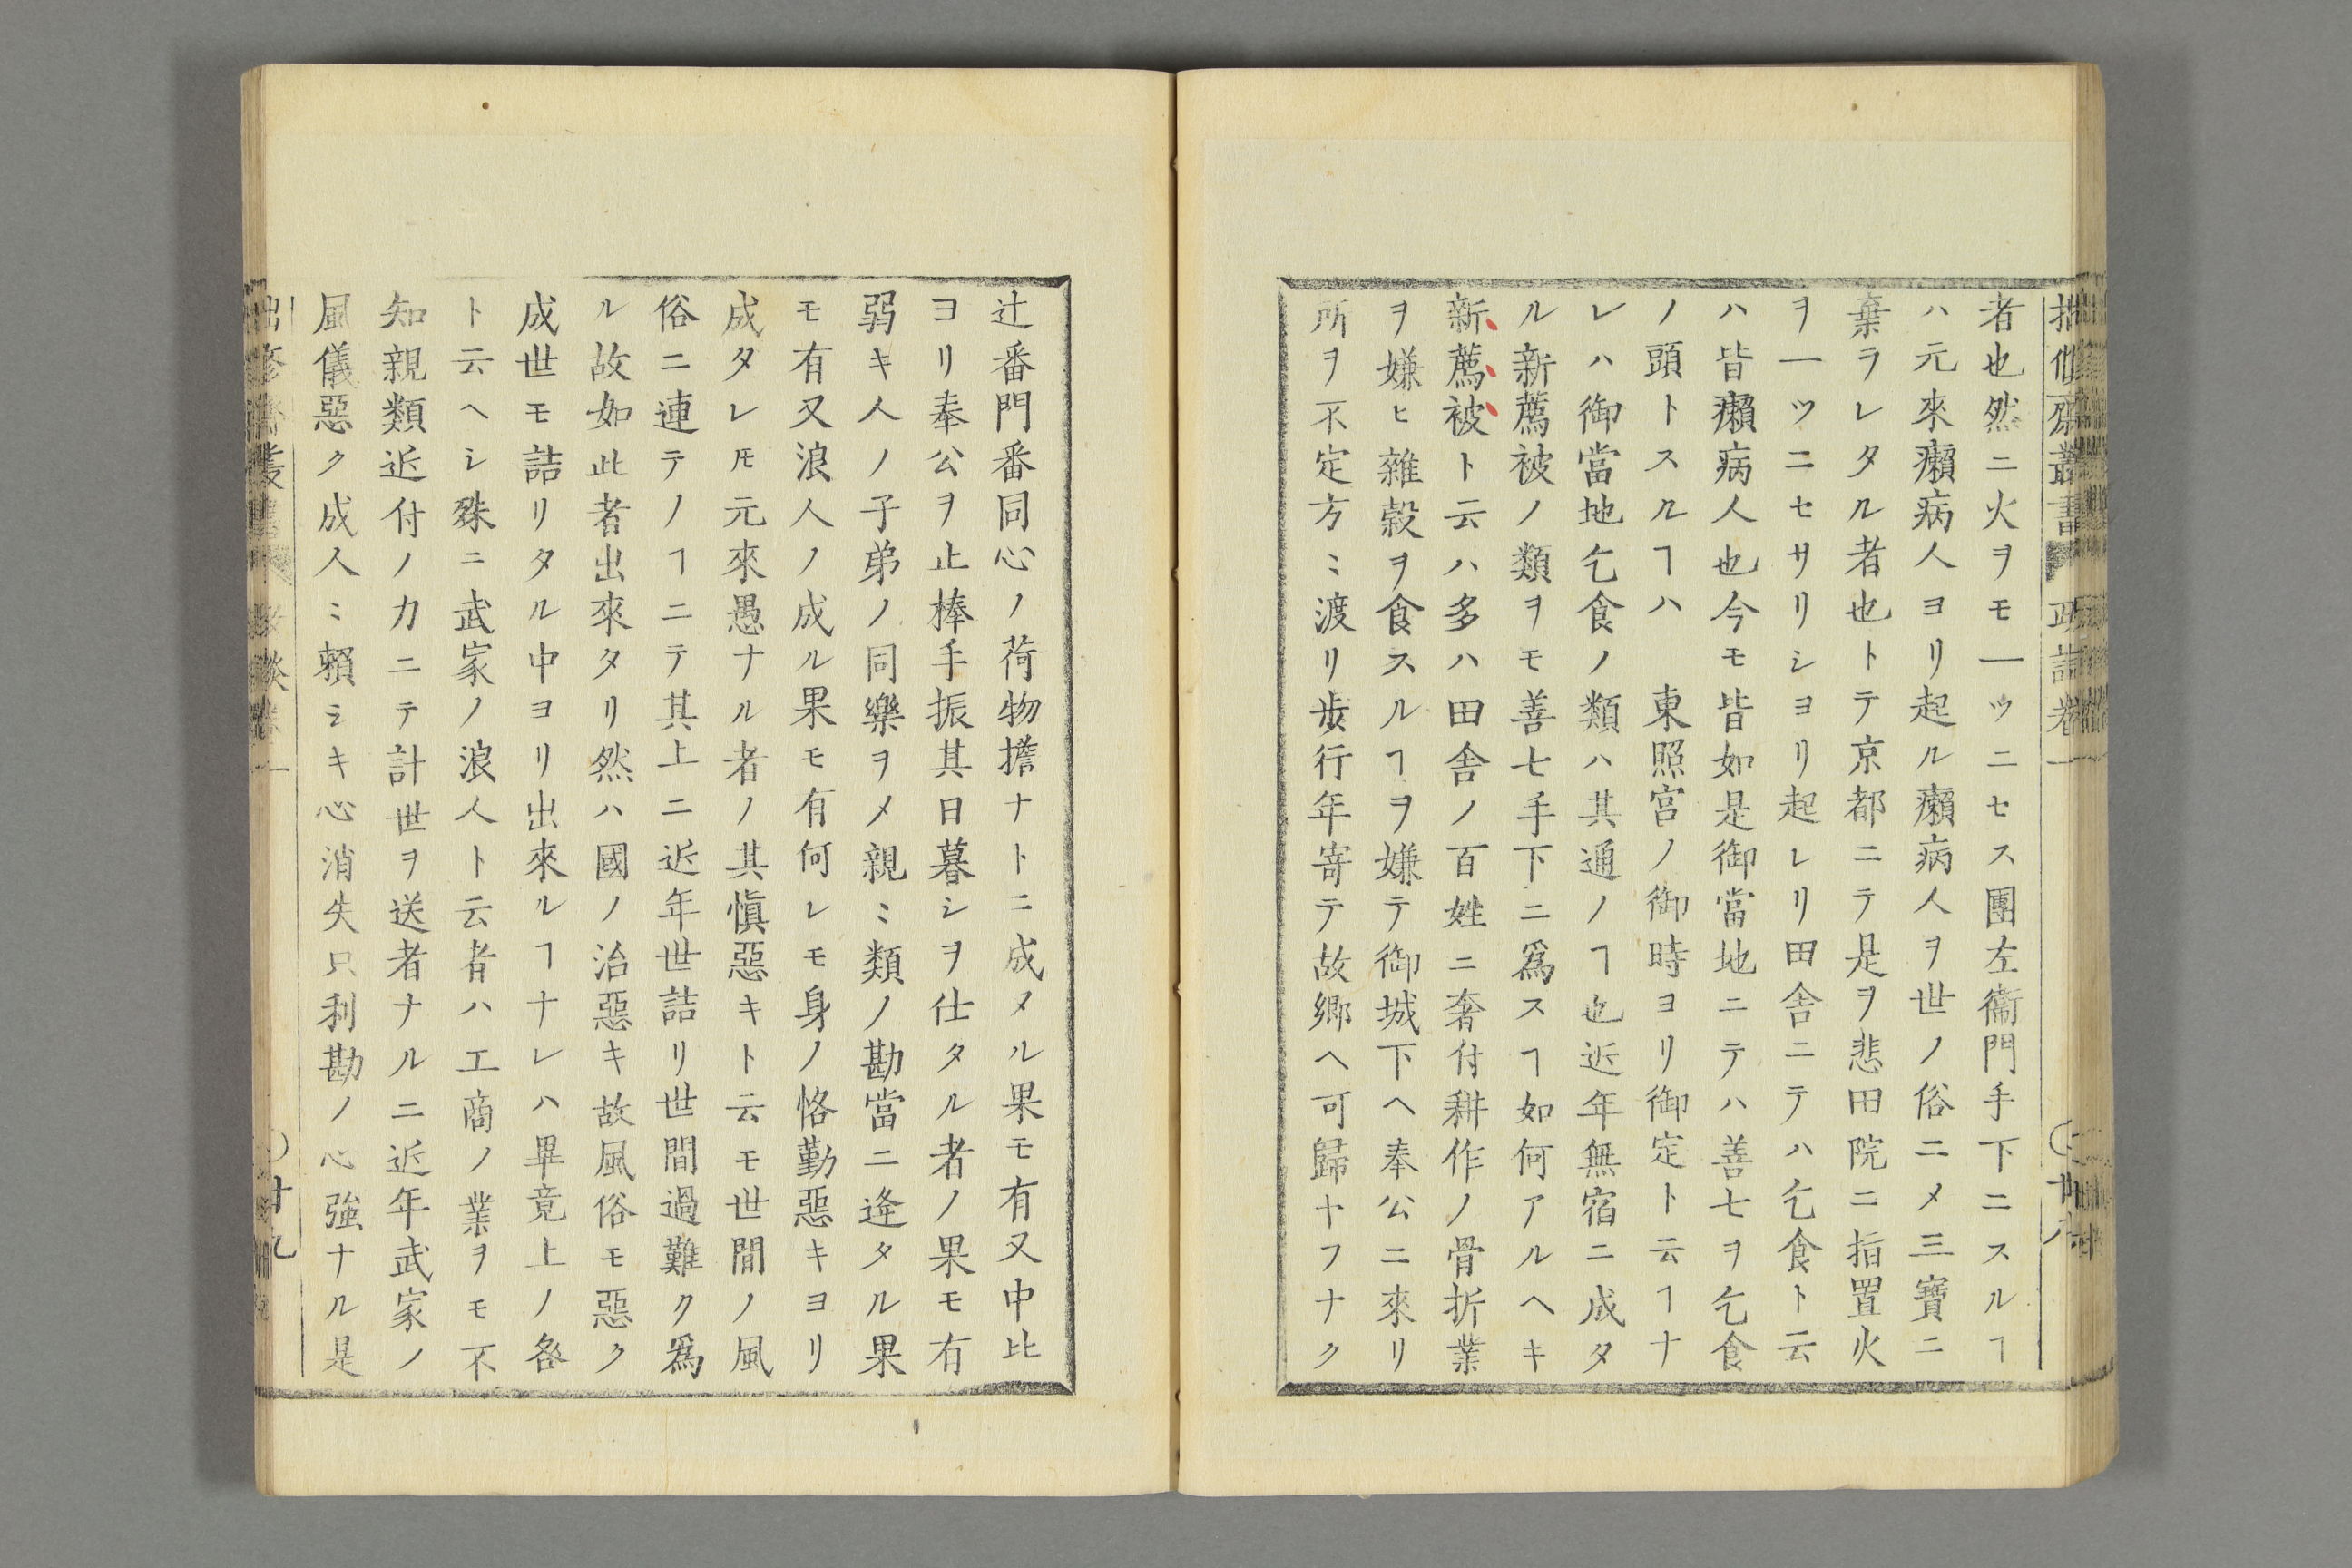 拙修齋叢書 政談卷一 〇廿八
者也然ニ火ヲモ一ツニセス團左衞門手下ニスルヿ
ハ元來癩病人ヨリ起ル癩病人ヲ世ノ俗ニメ三寶ニ
棄ラレタル者也トテ京都ニテ是ヲ悲田院ニ指置火
ヲ一ツニセサリシヨリ起レリ田舎ニテハ乞食ト云
ハ皆癩病人也今モ皆如是御當地ニテハ善七ヲ乞食
ノ頭トスルヿハ　東照宮ノ御時ヨリ御定ト云ヿナ
レハ御當地乞食ノ類ハ其通ノヿ也近年無宿ニ成タ
ル新薦被ノ類ヲモ善七手下ニ爲スヿ如何アルヘキ
新薦被ト云ハ多ハ田舎ノ百姓ニ奢付耕作ノ骨折業
ヲ嫌ヒ雜穀ヲ食スルヿヲ嫌テ御城下ヘ奉公ニ來リ
所ヲ不定方〻渡リ歩行年寄テ故郷ヘ可歸トフナク
辻番門番同心ノ荷物擔ナトニ成メル果モ有又中比
ヨリ奉公ヲ止棒手振其日暮シヲ仕タル者ノ果モ有
弱キ人ノ子弟ノ同樂ヲメ親〻類ノ勘當ニ逢タル果
モ有又浪人ノ成ル果モ有何レモ身ノ恪勤惡キヨリ
成タレ𪜈元來愚ナル者ノ其愼惡キト云モ世間ノ風
俗ニ連テノヿニテ其上ニ近年世詰リ世間過難ク爲
ル故如此者出來タリ然ハ國ノ治惡キ故風俗モ惡ク
成世モ詰リタル中ヨリ出來ルヿナレハ畢竟上ノ咎
ト云ヘシ殊ニ武家ノ浪人ト云者ハ工商ノ業ヲモ不
知親類近付ノ力ニテ計世ヲ送者ナルニ近年武家ノ
風儀惡ク成人〻賴シキ心消失只利勘ノ心強ナル是
拙修齋叢書 政談卷一 〇廿九